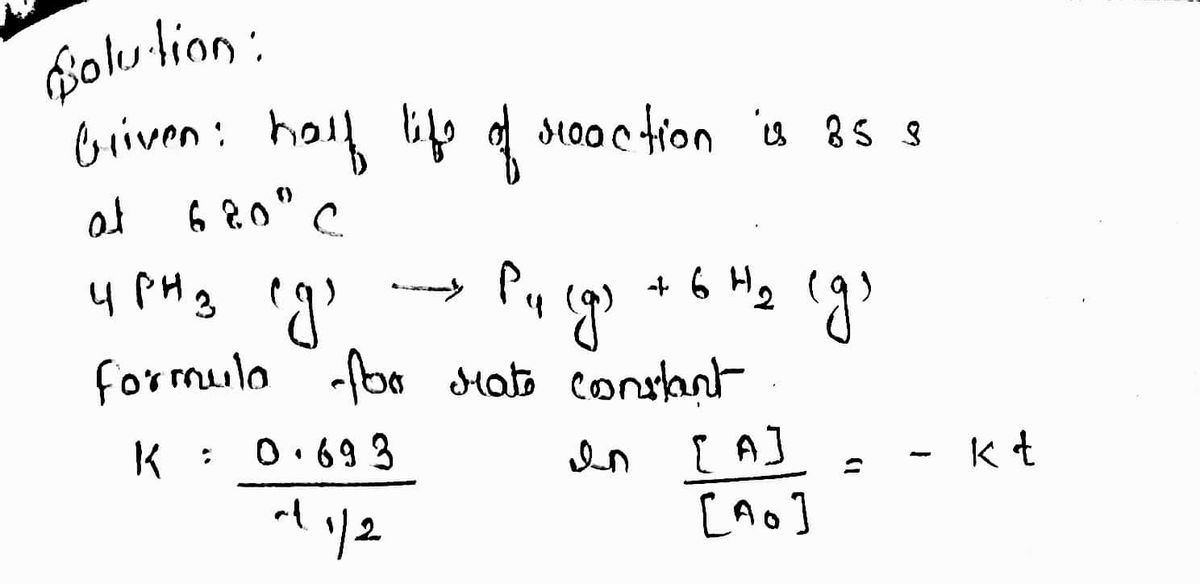 Solution:
Given: half life of reaction is 35 s
at 680° C
4 PH₃ (g) → P₄ (g) + 6 H₂ (g)
formula for rate constant
K = 0.693 / t 1/2    ln [A] / [A₀] = - Kt